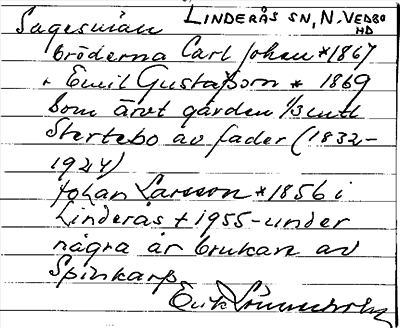 LINDERÅS SN, N. VEDBO
HD
Sagesmän
bröderna Carl Johan *1867
+ Emil Gustafsson * 1869
som ärvt gården 1/3 mtl
Stertebo av fader (1832-
1924)
Johan Larsson *1856 i
Linderås + 1955 - under
några år brukare av
Spinkarp
Erik